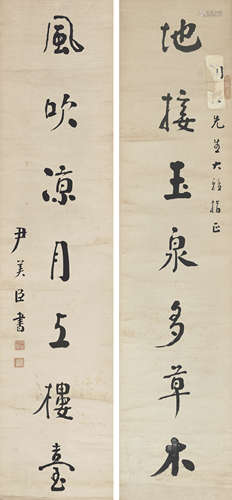 地接玉泉多草木
先生大雅指正
風吹凉月上樓臺
尹美臣書